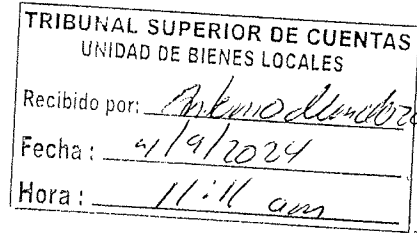 TRIBUNAL SUPERIOR DE CUENTAS
UNIDAD DE BIENES LOCALES
Recibido por: Antonio Mendoza
Fecha: 4/9/2024
Hora: 11:11 am